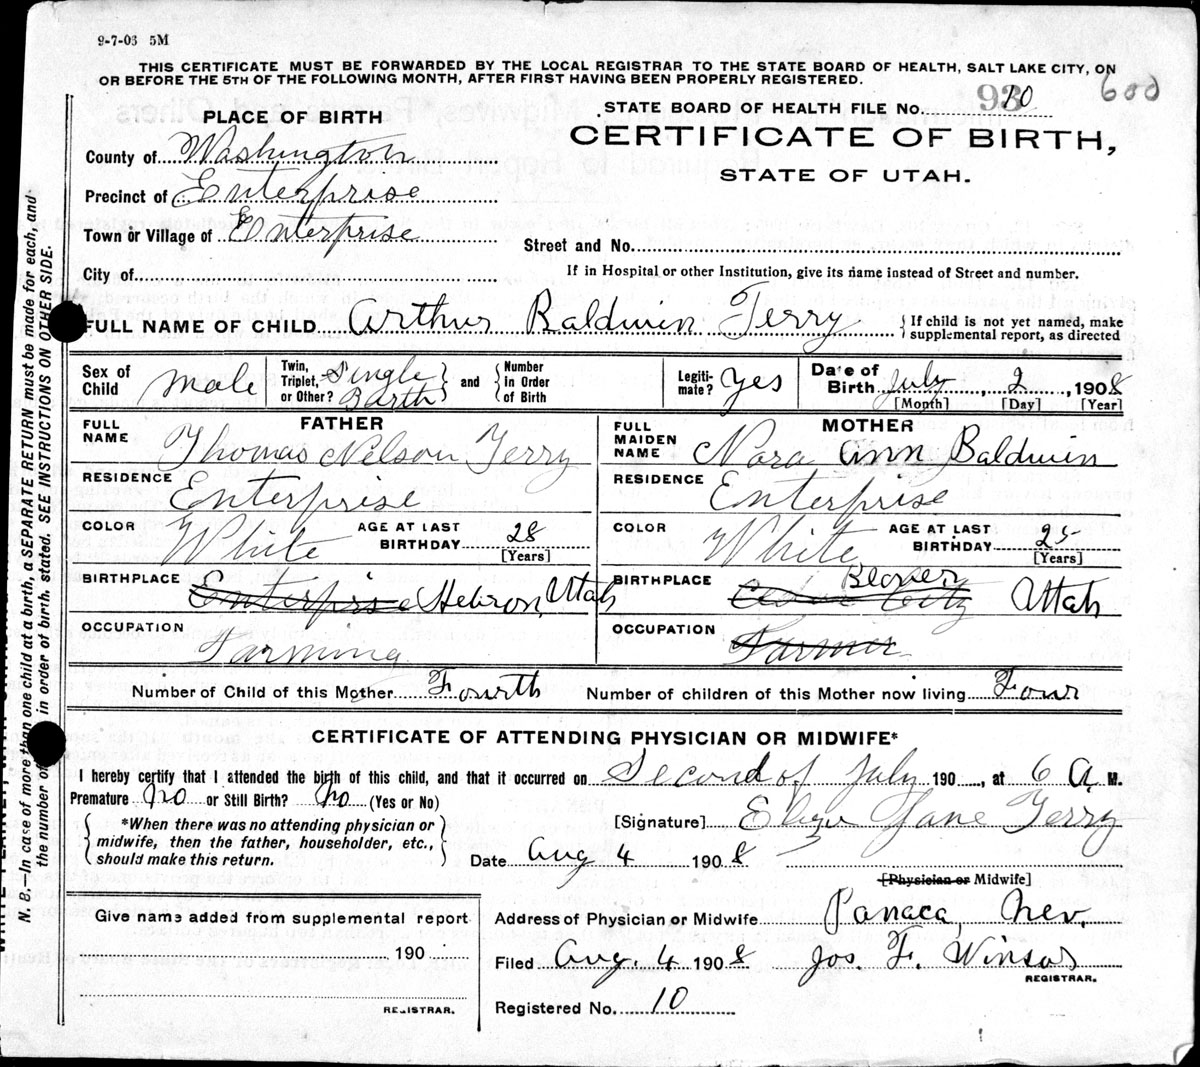 9-7-03 5M
THIS CERTIFICATE MUST BE FORWARDED BY THE LOCAL REGISTRAR TO THE STATE BOARD OF HEALTH, SALT LAKE CITY, ON
OR BEFORE THE 5TH OF THE FOLLOWING MONTH, AFTER FIRST HAVING BEEN PROPERLY REGISTERED.
600
STATE BOARD OF HEALTH FILE No. 93 10
PLACE OF BIRTH
CERTIFICATE OF BIRTH,
STATE OF UTAH.
County of Washington
Precinct of Enterprise
Town or Village of Enterprise
Street and No.
City of
If in Hospital or other Institution, give its name instead of Street and number.
FULL NAME OF CHILD Arthur Baldwin Terry
{If child is not yet named, make
supplemental report, as directed
Sex of Child male
Twin, Triplet, or Other? Single Barth} and {Number in Order of Birth
Legiti-mate? Yes
Date of Birth July, 2, 1908
[Month] [Day] [Year]
FATHER
FULL NAME Thomas Nelson Terry
RESIDENCE Enterprise
COLOR White AGE AT LAST BIRTHDAY 28 [Years]
BIRTHPLACE Enterprise Hebron, Utah
OCCUPATION Farming
MOTHER
FULL MAIDEN NAME Nora Ann Baldwin
RESIDENCE Enterprise
COLOR White AGE AT LAST BIRTHDAY 25 [Years]
BIRTHPLACE Cedar City Beaver Utah
OCCUPATION Farmer
Number of Child of this Mother Fourth Number of children of this Mother now living Four
CERTIFICATE OF ATTENDING PHYSICIAN OR MIDWIFE*
I hereby certify that I attended the birth of this child, and that it occurred on Second of July 190, at 6 A. M.
Premature No or Still Birth? No (Yes or No)
{*When there was no attending physician or
midwife, then the father, householder, etc.,
should make this return.}
[Signature] Jane Terry
Date Aug 4 1908
[Physician or Midwife]
Give name added from supplemental report
190
REGISTRAR.
Address of Physician or Midwife Panaca, Nev.
Filed Aug. 4 1908 Jos. F. Winsor
REGISTRAR.
Registered No. 10
N. B.—In case of more than one child at a birth, a SEPARATE RETURN must be made for each, and
the number of in order of birth, stated. SEE INSTRUCTIONS ON OTHER SIDE.